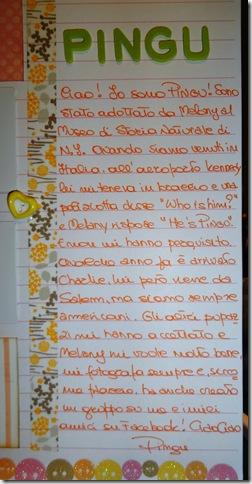 PINGU
Ciao! Io sono PINGU! Sono
stato adottato da Melany al
Museo di Storia Naturale di
N.Y. Quando siamo venuti in
Italia, all'aeroporto Kennedy
lei mi teneva in braccio e una
poliziotta disse "Who is him?"
e Melany rispose "He's Pingu".
E now mi hanno perquisito.
Qualche anno fa è arrivato
Charlie, lui però viene da
Salem, ma siamo sempre
americani. Gli altri pupaz
zi mi hanno accettato e
Melany mi vuole molto bene,
mi fotografa sempre e,
me piaceva, ha anche creato
un gruppo su me e i miei
amici su Facebook! CiaoCiao
Pingu